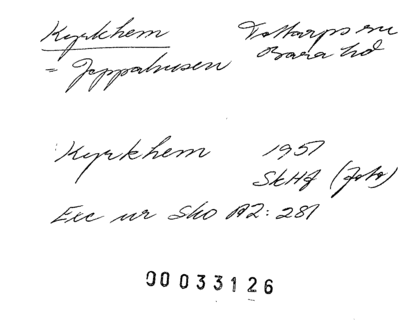 Kyrkhem Tottarps sn
= Jeppahusen Bara hd
Kyrkhem 1951
SkHg (foto)
Exc ur Sko A2: 281
00033126